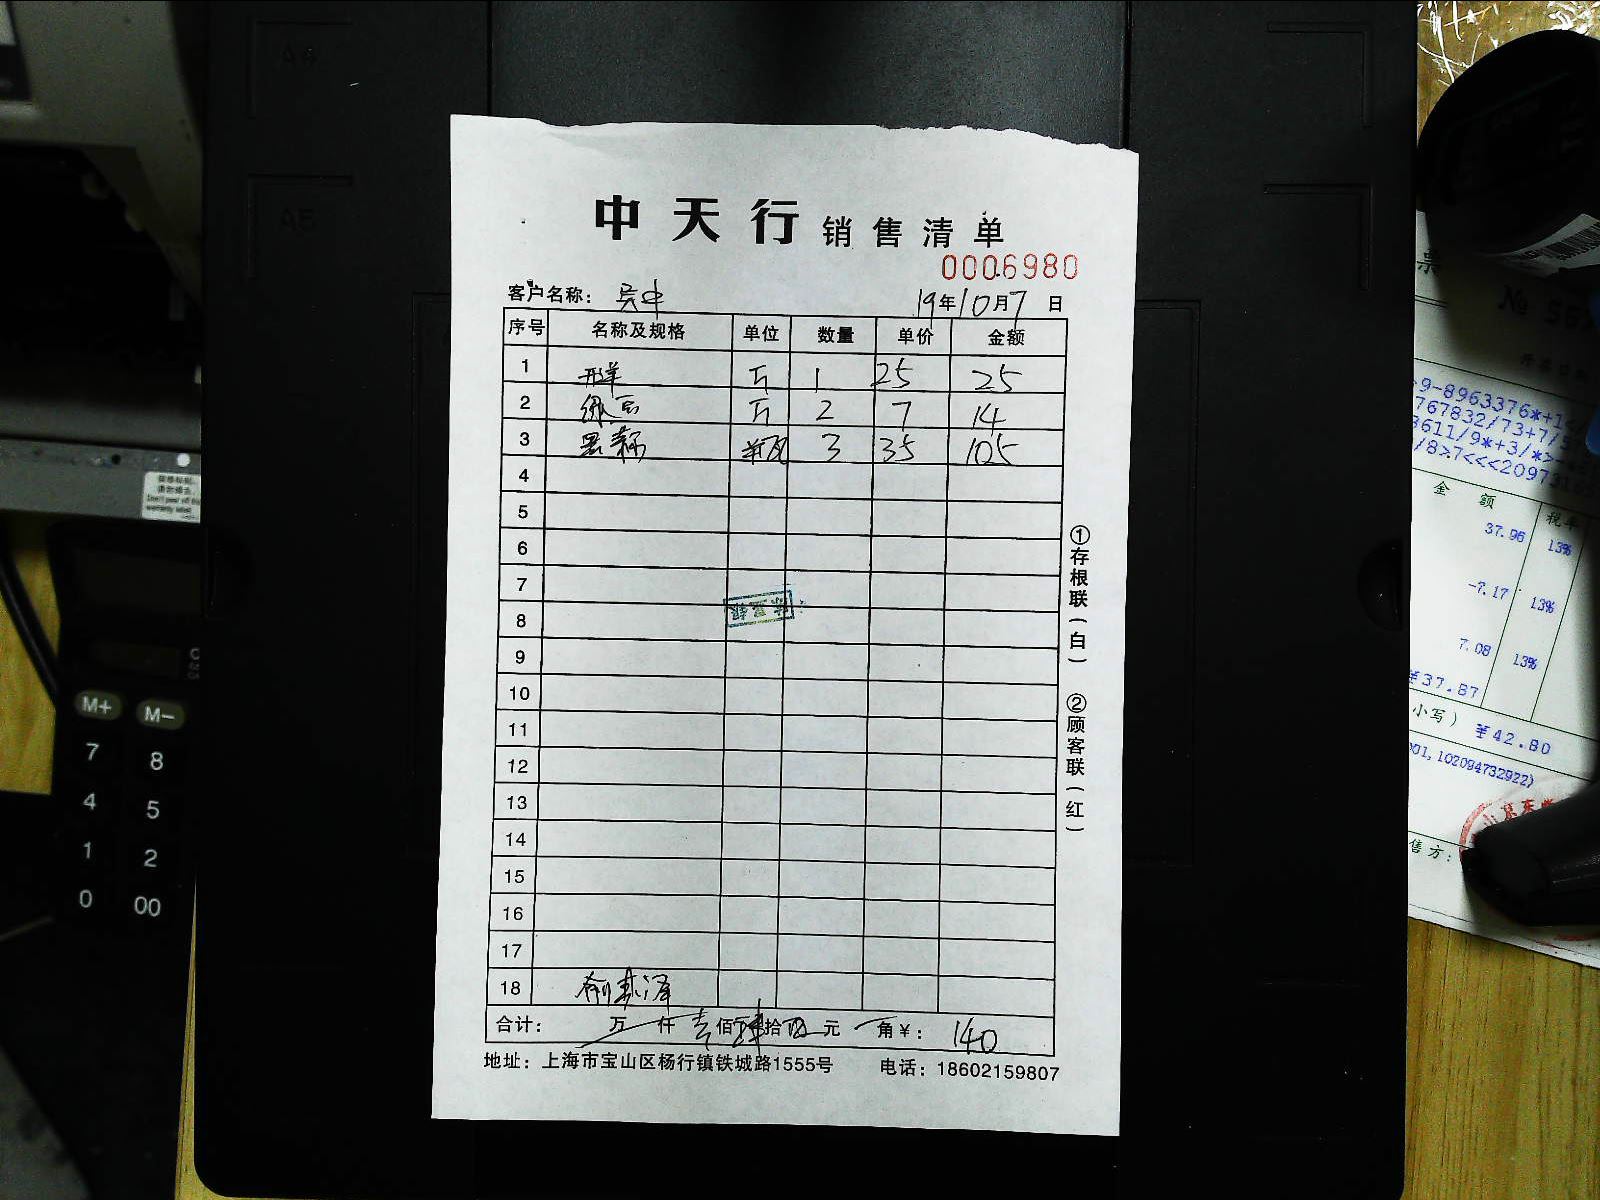 中天行 销售清单
0006980
客户名称： 吴中 19年10月7日
序号 名称及规格 单位 数量 单价 金额
1 斤 1 25 25
2 绿豆 斤 2 7 14
3 3 35 105
4
5
6
7
8
9
10
11
12
13
14
15
16
17
18
合计： 万 仟 壹佰肆拾 元 角￥： 140
地址：上海市宝山区杨行镇铁城路1555号 电话：18602159807
①存根联(白)
②顾客联(红)
M+ M-
7 8
4 5
1 2
0 00
票
№
9-8963376*+1<
767832/73+7/5
3611/9*+3/*>
/8>7<<<2097
金额 税率
37.96 13%
-7.17 13%
7.08 13%
¥37.87
小写) ¥42.80
001,102094732922)
售方：